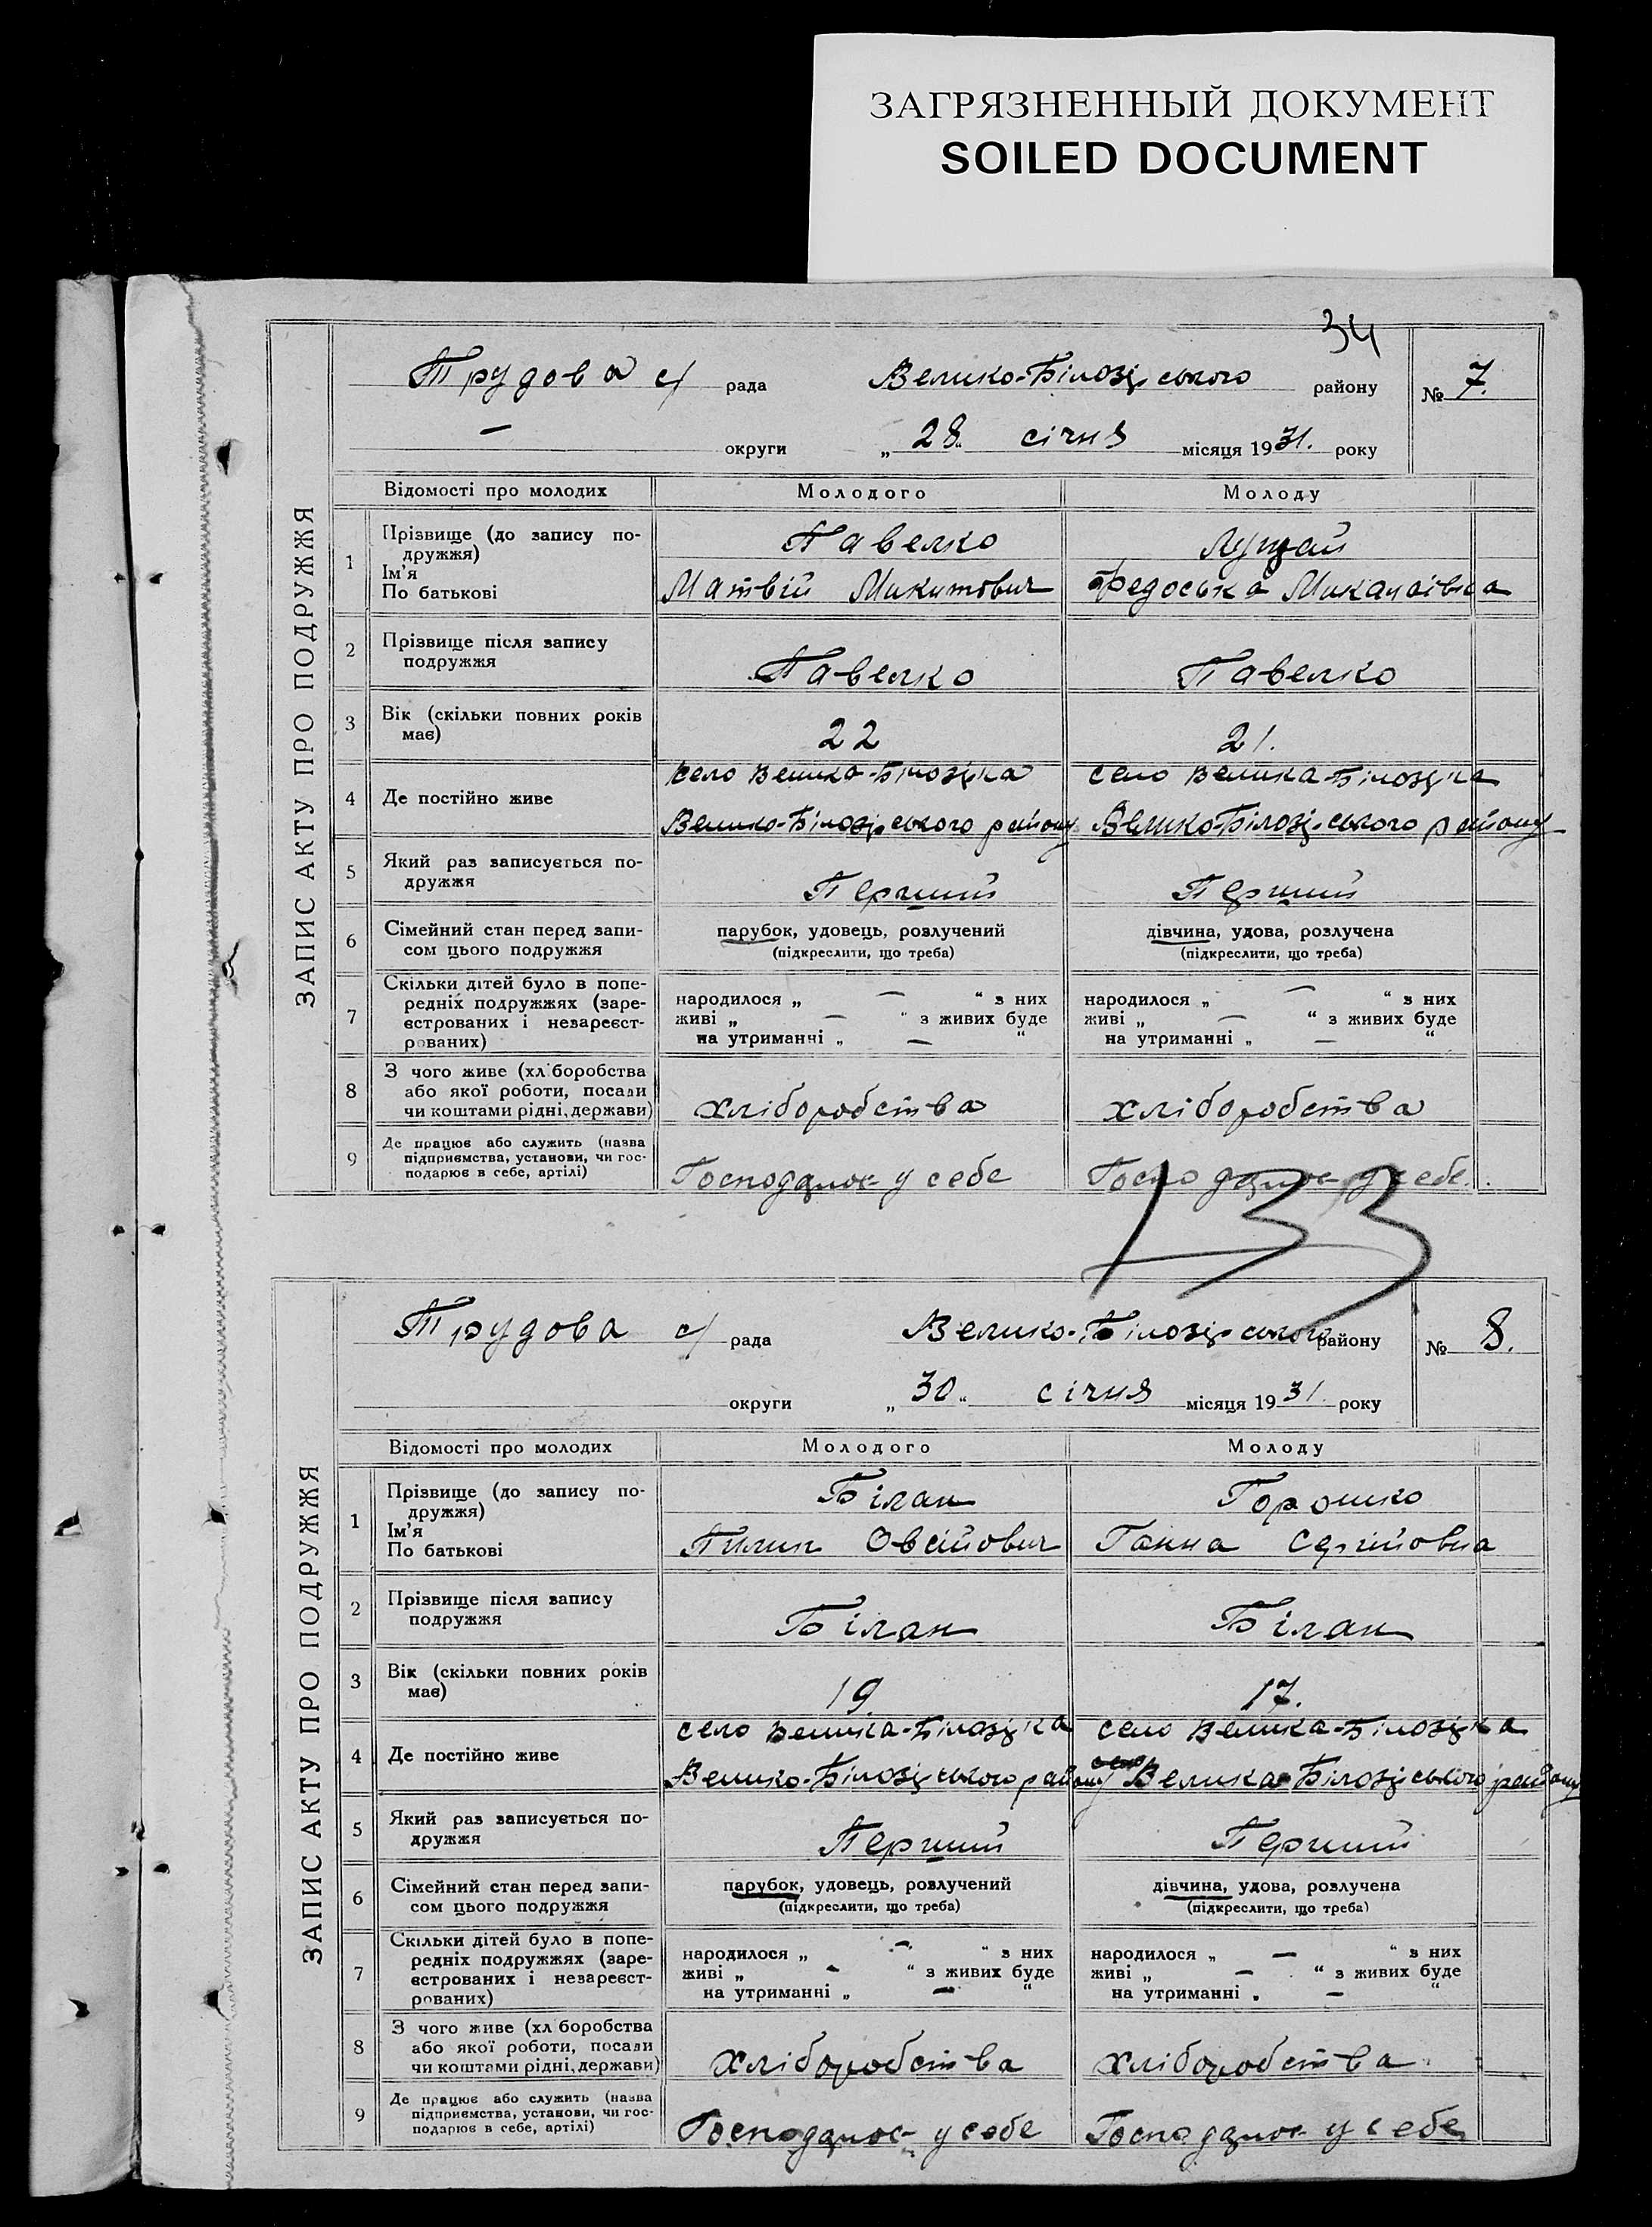 ЗАГРЯЗНЕННЫЙ ДОКУМЕНТ
SOILED DOCUMENT
34
ЗАПИС АКТУ ПРО ПОДРУЖЖЯ
Трудова с/ рада Велико-Білозірського району № 7.
— округи „28“ січня місяця 1931. року
Відомості про молодих Молодого Молоду
1 Прізвище (до запису по-
дружжя) Павелко Луцай
Ім'я
По батькові Матвій Микитович Федоська Микалаівна
2 Прізвище після запису
подружжя Павелко Павелко
3 Вік (скільки повних років
має) 22 21.
село Велико-Білозірка село Велика-Білозірка
4 Де постійно живе
Велико-Білозірського району Велико-Білозірського району
5 Який раз записується по-
дружжя Перший Перший
6 Сімейний стан перед запи- парубок, удовець, розлучений дівчина, удова, розлучена
сом цього подружжя (підкреслити, що треба) (підкреслити, що треба)
7 Скільки дітей було в попе-
редніх подружжях (заре- народилося „ — “ з них народилося „ — “ з них
єстрованих і незареєст- живі „ — “ з живих буде живі „ — “ з живих буде
рованих) на утриманні „ — “ на утриманні „ — “
8 З чого живе (хл боробства
або якої роботи, посади
чи коштами рідні, держави) хліборобства хліборобства
9 Де працює або служить (назва
підприємства, установи, чи гос-
подарює в себе, артілі) Господарює у себе Господарює у себе.
133
ЗАПИС АКТУ ПРО ПОДРУЖЖЯ
Трудова с/ рада Велико-Білозірського району № 8.
округи „30“ січня місяця 1931. року
Відомості про молодих Молодого Молоду
1 Прізвище (до запису по-
дружжя) Білан Горошко
Ім'я
По батькові Пилип Овсійович Ганна Сергійовна
2 Прізвище після запису
подружжя Білан Білан
3 Вік (скільки повних років
має) 19. 17.
село Велика-Білозірка село Велика-Білозірка
4 Де постійно живе
Велико-Білозірського району Велика Білозірського району
5 Який раз записується по-
дружжя Перший Перший
6 Сімейний стан перед запи- парубок, удовець, розлучений дівчина, удова, розлучена
сом цього подружжя (підкреслити, що треба) (підкреслити, що треба)
7 Скільки дітей було в попе-
редніх подружжях (заре- народилося „ — “ з них народилося „ — “ з них
єстрованих і незареєст- живі „ — “ з живих буде живі „ — “ з живих буде
рованих) на утриманні „ — “ на утриманні „ — “
8 З чого живе (хл боробства
або якої роботи, посади
чи коштами рідні, держави) хліборобства хліборобства
9 Де працює або служить (назва
підприємства, установи, чи гос-
подарює в себе, артілі) Господарює у себе Господарює у себе